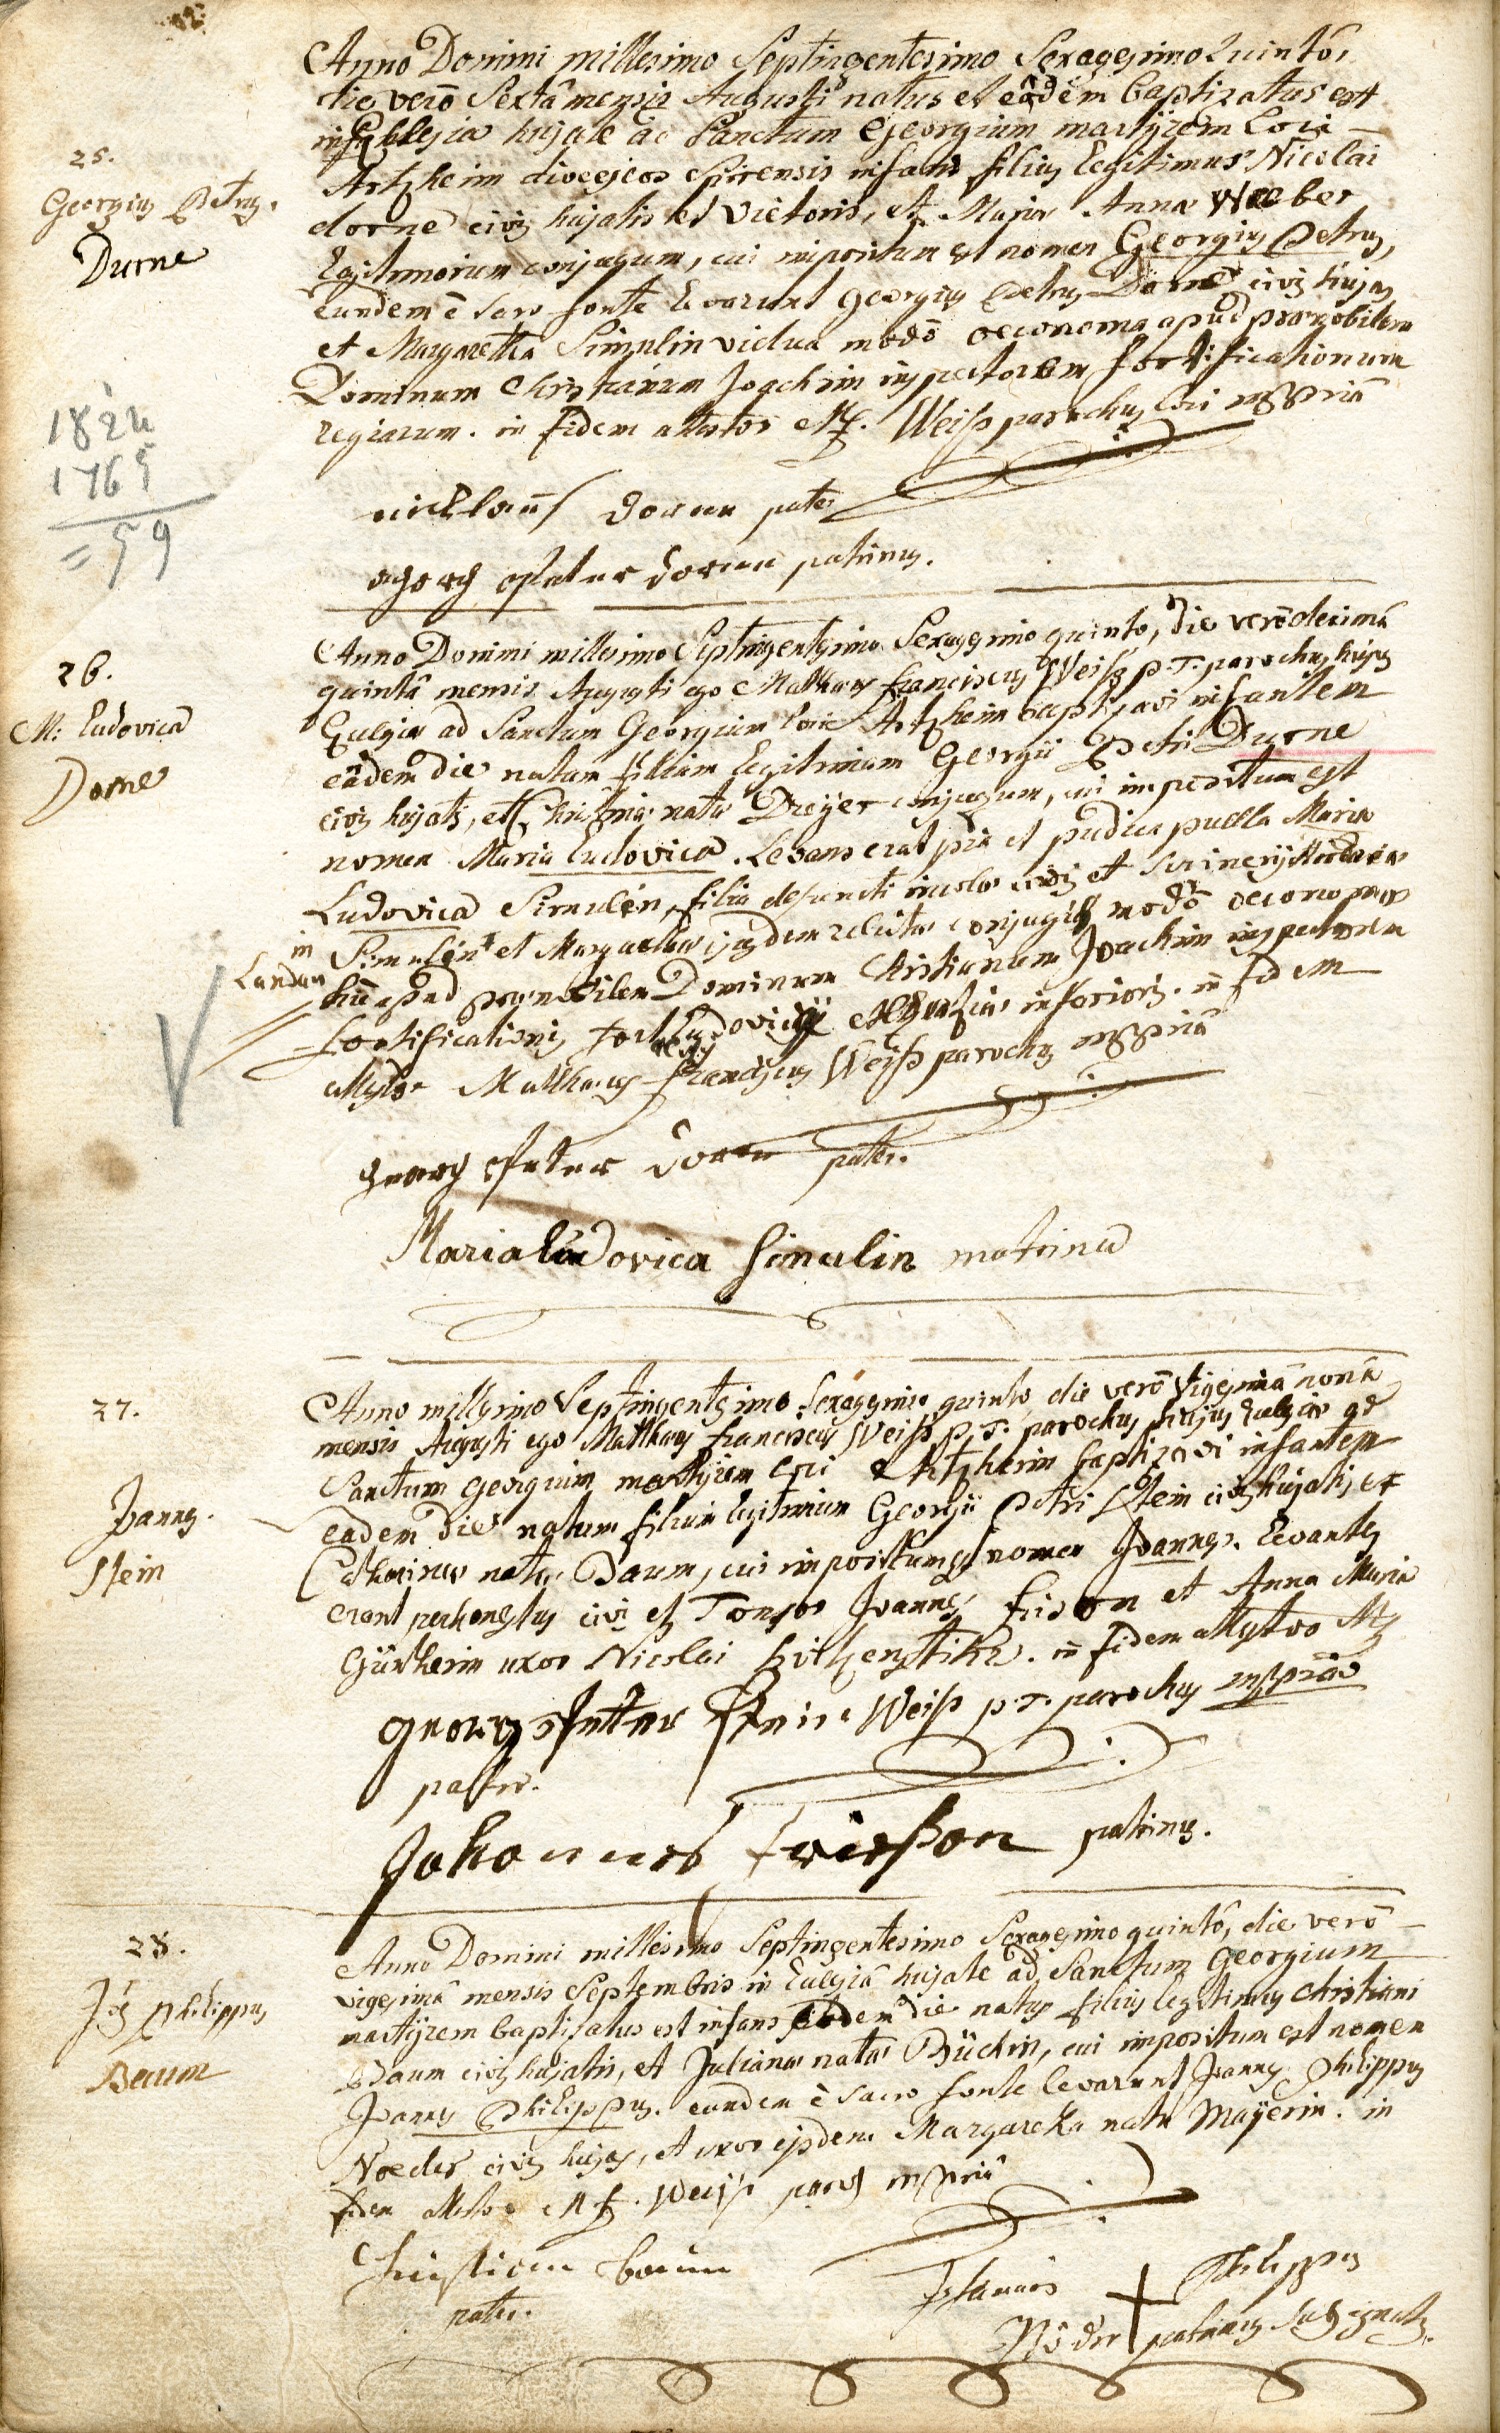 25.
Georgius Petrus.
Durne
Anno Domini millesimo Septingentesimo Sexagesimo Quintô,
die verô Sextâ mensis Augusti natus et eâdem baptizatus est
in Ecclesia hujate ad Sanctum Georgium martÿrem Loci
Artzheim dioeceseos Spirensis infans filius legitimus Nicolai
dorne civis hujatis et Victoris, et Mariæ Annæ Weber
legitimorum conjugum, cui impositum est nomen Georgius Petrus,
eundem è sacro fonte levarunt georgius Petrus Dorne civis hujas
et Margaretha Simulin vidua modò oeconoma apud prænobilem
Dominum Christianum Joachim inspectorem fortificationum
regiarum. in fidem attestor M F. Weiß parochus loci mppriâ
1824
1765
= 59
nicklaus dornen pater
georg Peter dornen patrinus.
26.
M: Ludovica
Dorne
Anno Domini millesimo Septingentesimo Sexagesimo quinto, die verò decimâ
quintâ mensis Augusti ego Matthæus franciscus Weiß p. T. parochus hujus
Ecclesiæ ad Sanctum Georgium loci Artzheim baptizavi infantem
eâdem die natam filiam legitimam Georgii Petri Durne
civis hujatis, et Christinæ natæ Dreÿer conjugum, cui impositum est
nomen Maria Ludovica. Levans erat pia et pudica puella Maria
Ludovica Simulin, filia defuncti incolæ civis et
in Landau
Simulin et Margarethæ ejusdem relictæ conjugis modò oeconomæ
apud prænobilem Dominum Christianum Joachim inspectorem
fortificationis fort Ludovici Alsatiæ inferioris. in fidem
attestor Matthæus franciscus Weiß parochus mppriâ
georg Peter dornen pater.
Maria Ludovica Simulin matrina
27.
Joannes.
Stein
Anno millesimo Septingentesimo Sexagesimo quinto, die verò vigesimâ nonâ
mensis Augusti ego Matthæus franciscus Weiß p. T. parochus hujus Ecclesiæ ad
Sanctum georgium martÿrem loci Artzheim baptizavi infantem
eadem die natum filium legitimum Georgii Petri Stein civis hujatis, et
Catharinæ natæ Daum, cui impositum est nomen Joannes. Levantes
erant perhonestus civis et Tonsor Joannes frison et Anna Maria
uxor Nicolai. in fidem attestor M
georg Petter Stein Weiß p. T. parochus mppriâ
patter.
Johannes frießon patrinus.
28.
Jo͞es Philippus
Baum
Anno Domini millesimo Septingentesimo Sexagesimo quintô, die verô
vigesimâ mensis Septembris in Ecclesiâ hujate ad Sanctum Georgium
martÿrem baptisatus est infans eodem die natus filius legitimus Christiani
Baum civis hujatis, et Julianæ natæ Bückin, cui impositum est nomen
Joannes Philippus. eundem è sacro fonte levarunt Joannes Philippus
Noeder civis hujas, et uxor ejusdem Margaretha nata Maÿerin. in
fidem attestor M F. Weiß parochus mppriâ
Christian baum
pater.
Johannes Philippus
Nöder patrinus subsignatus.